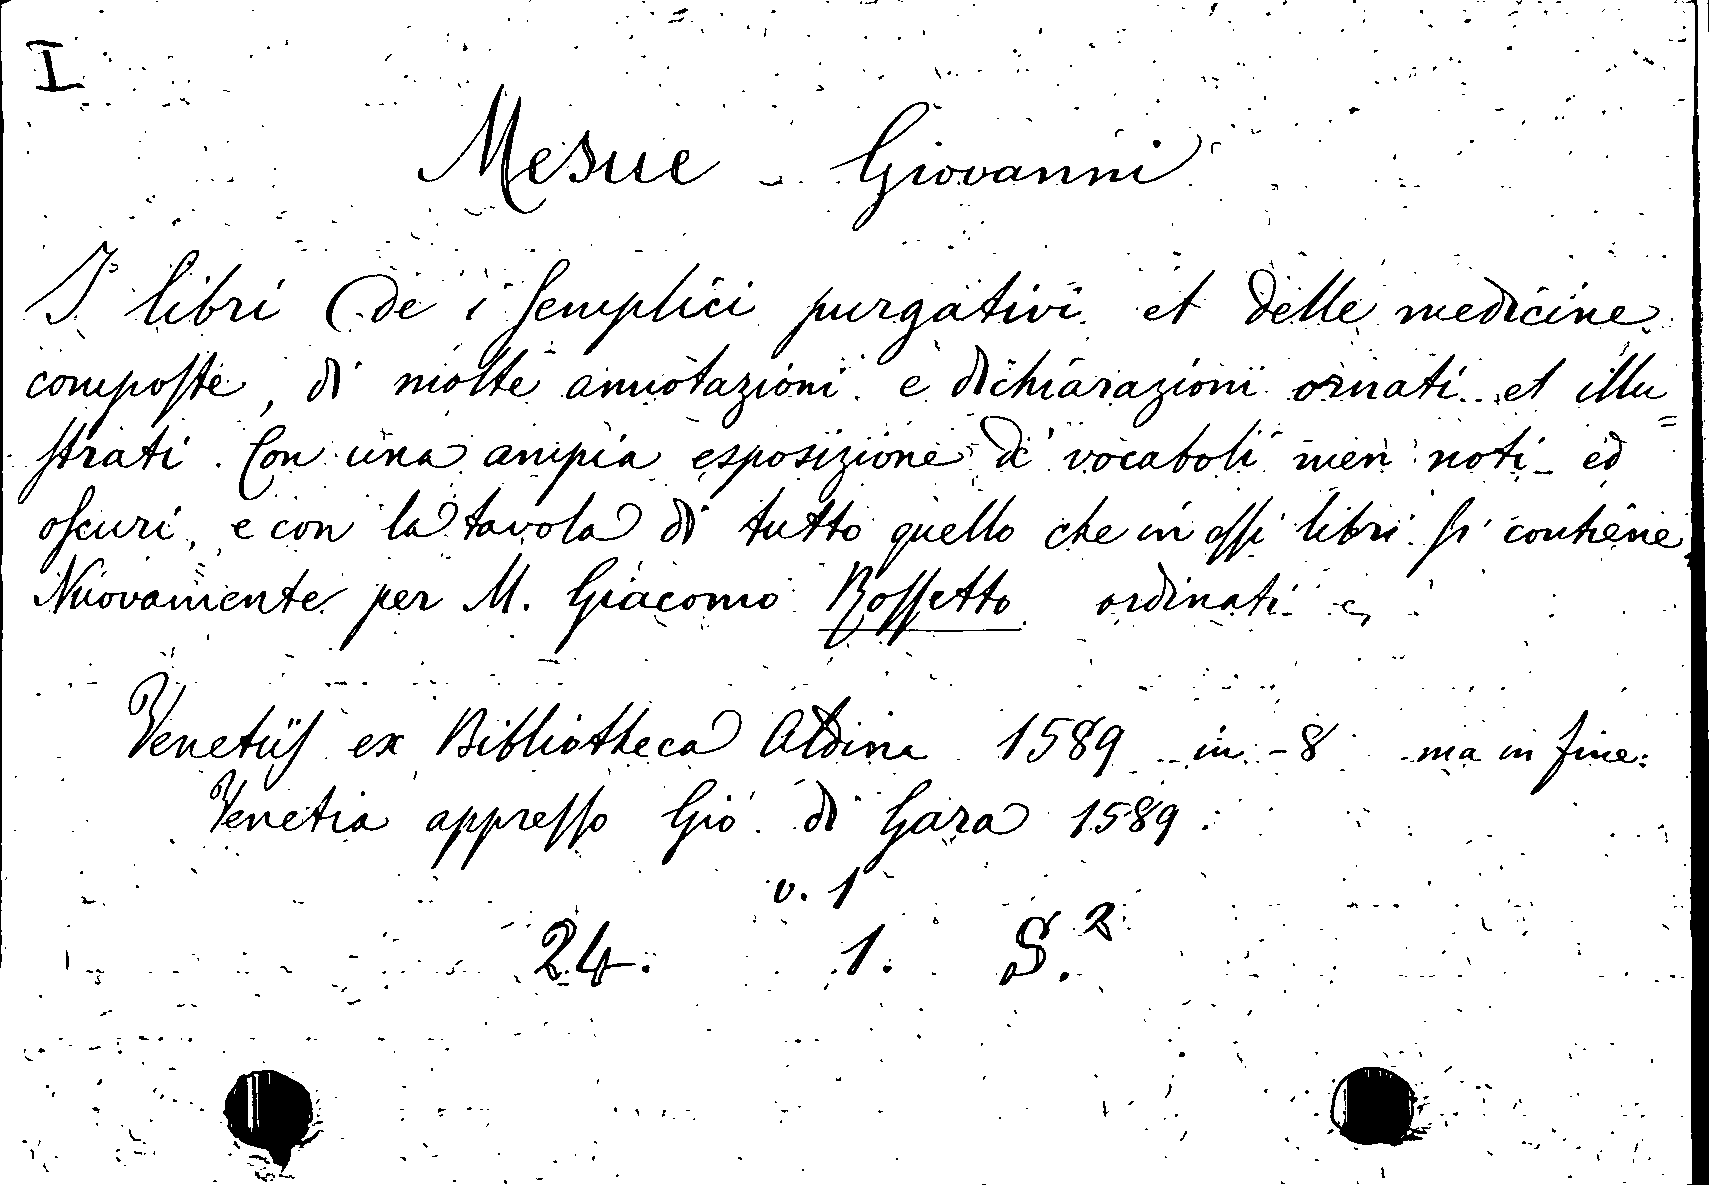 I
Mesue - Giovanni
I libri de i semplici purgativi et delle medicine
composte, di molte annotazioni e dichiarazioni ornati et illu=
strati. Con una ampia esposizione de' vocaboli men noti ed
oscuri, e con la tavola di tutto quello che in essi libri si contiene.
Nuovamente per M. Giacomo Rossetto ordinati
Venetiis ex Bibliotheca Aldina 1589 in-8 ma in fine:
Venetia appresso Gio. di Gara 1589.
v. 1
24. 1. S.2